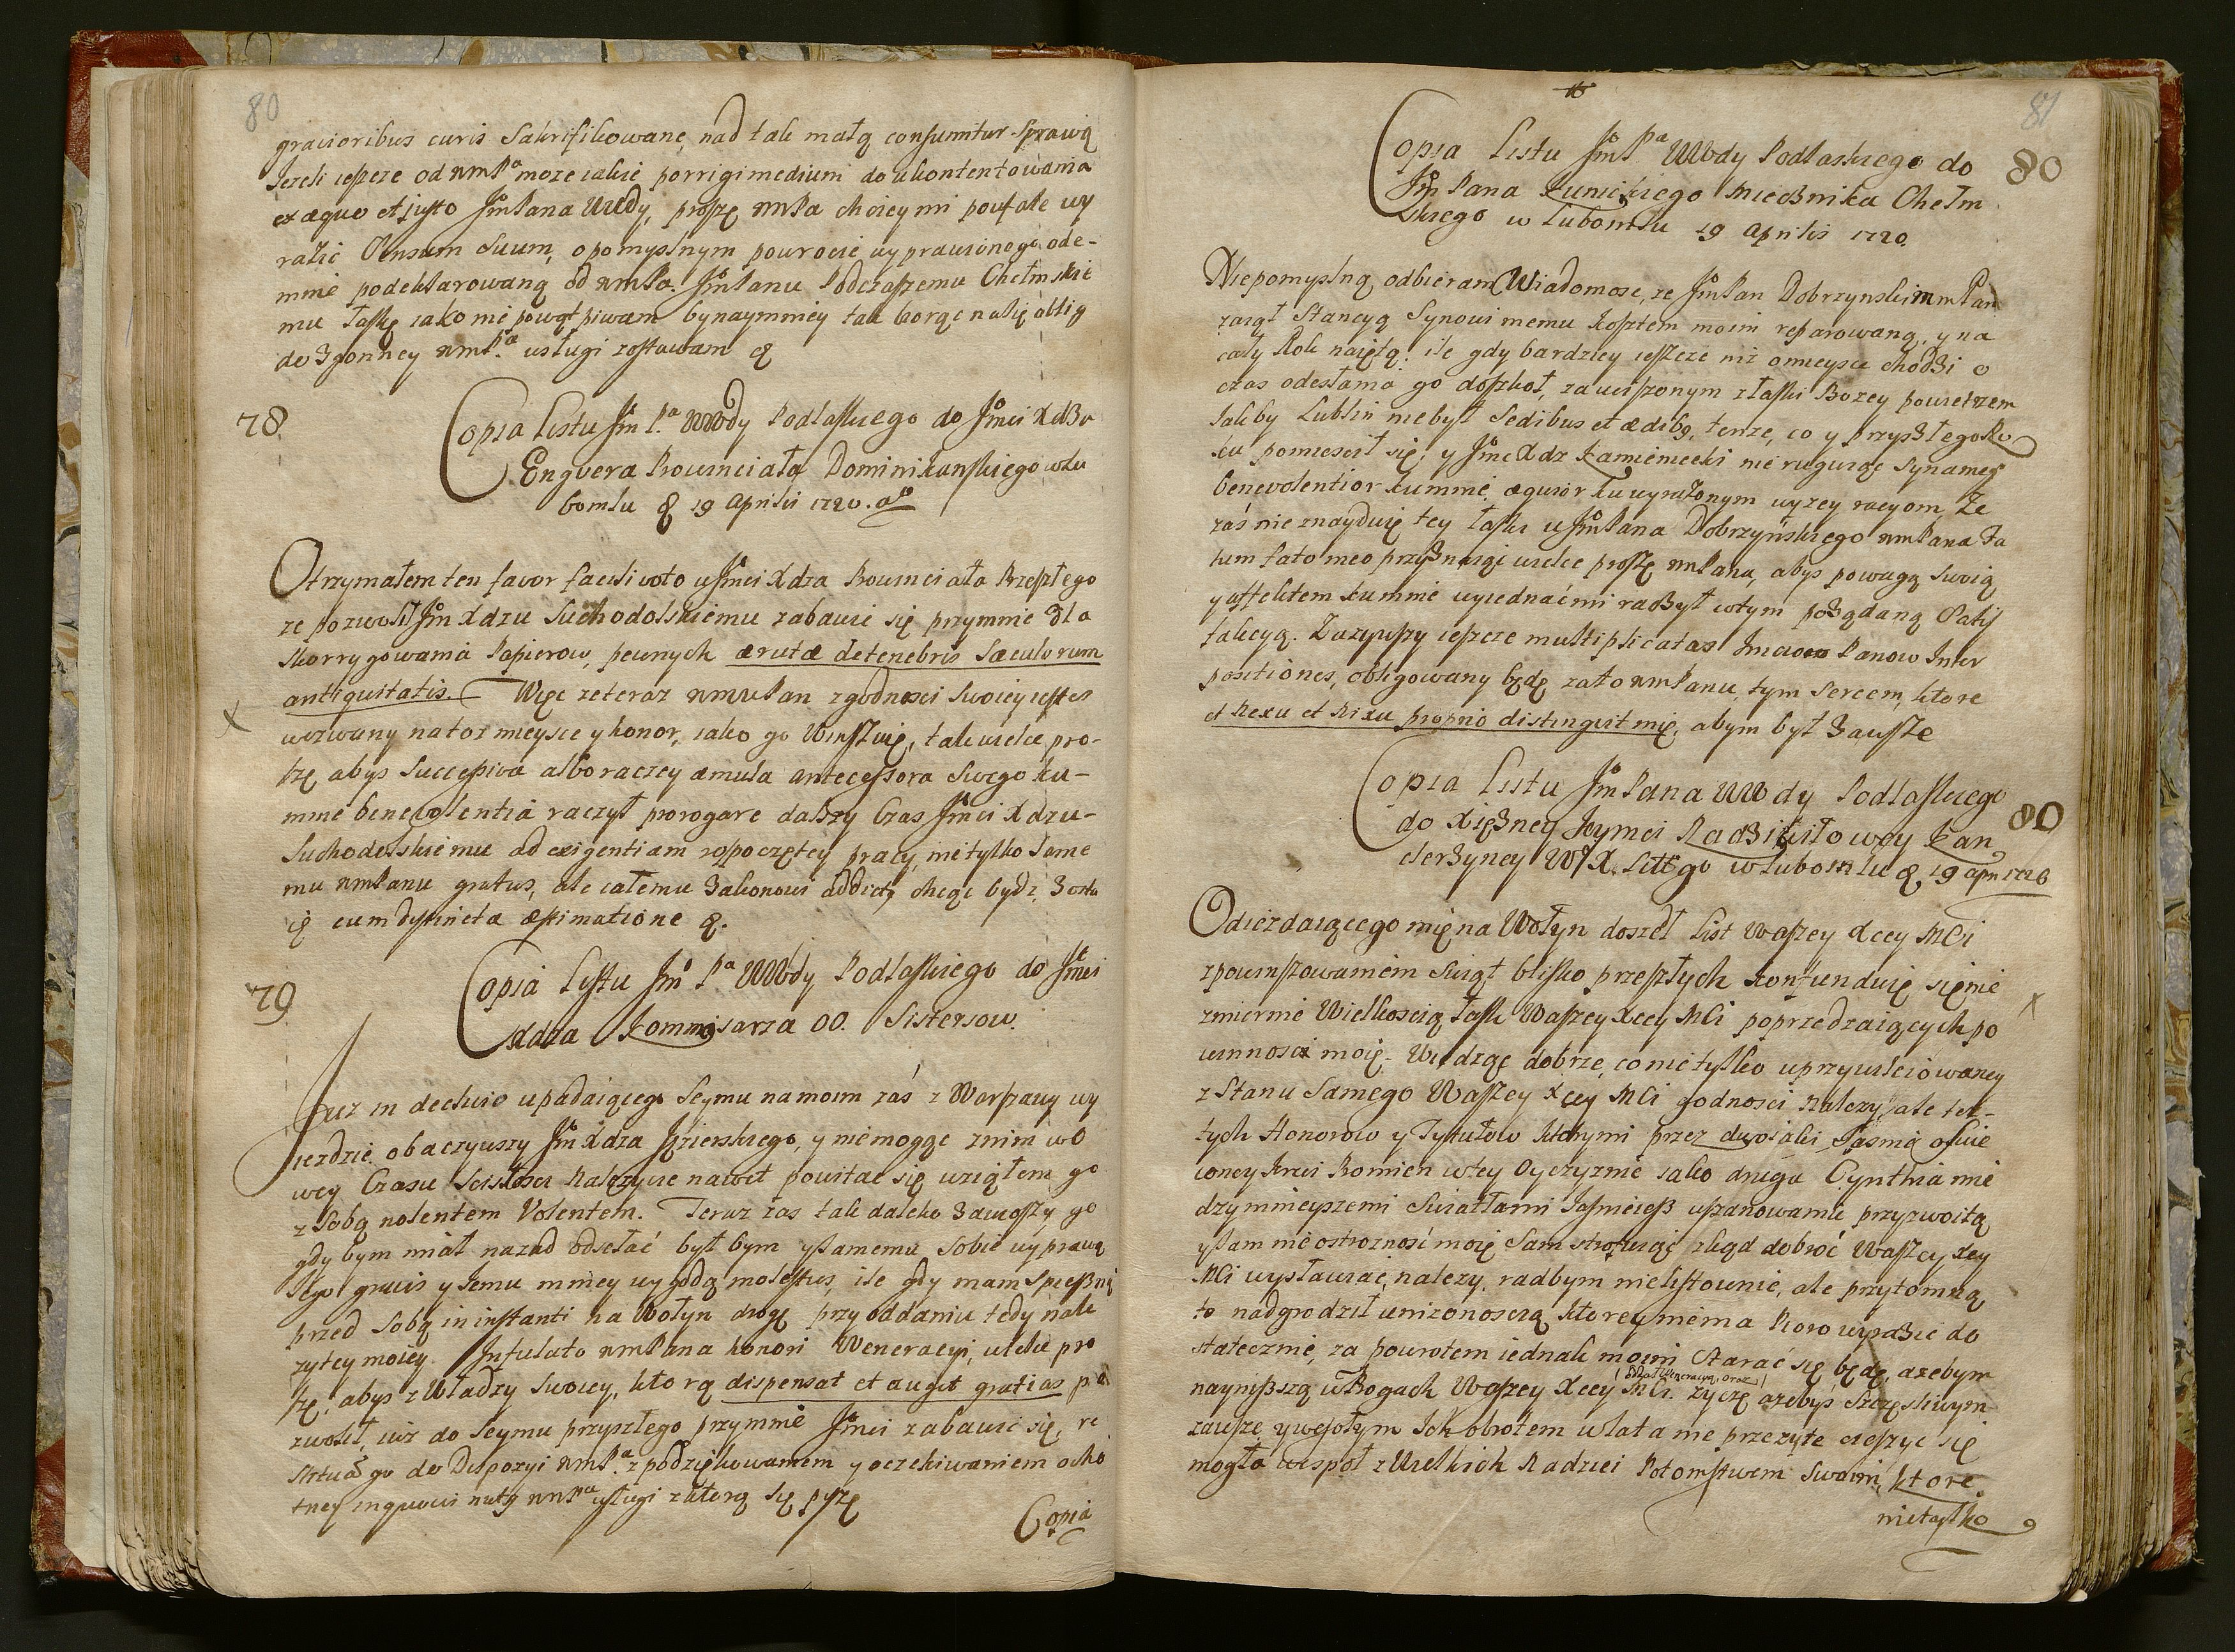 80
gravioribus curis Sakrifikowane, nad tak małą consumitur Sprawą
Jezeli ieszcze od wmPa moze iakie porrigi medium do ukontentowania
ex æquo et justo Jm Pana Wwdy, proszę wmPa chciey mi poufale wy
razić Sensum Suum, o pomyslnym powrocie wyprawionego ode-
mnie podeklarowaną od wmPa. Jm Panu Podczaszemu Chełmskie
mu łaskę iako nie powątpiwam bynaymniey tak biorąc na się oblig
do Zgonney wmPa usługi zostawam &
78
Copia Listu Jm Pa Wwdy Podlaskiego do Jmci XdZa
Engvera Prowinciała Dominikanskiego w Lu
bomlu & 19 Aprilis 1720. ao
Otrzymałem ten favor facili voto u Jmci Xdza Prowinciała Przeszłego
ze pozwolił Jm Xdzu Suchodolskiemu zabawić się przymnie dla
skorrygowania Papierow, pewnych ærutæ de tenebris Sæculorum
antiquitatis. Więc ze teraz wmm Pan z godnosci Swoiey iestes
x
wezwany na toz mieysce y honor, iako go Winszuię, tak wielce pro-
szę abys Successiva albo raczey æmula antecessora Swego ku-
mnie benevolentia raczył prorogare dalszy Czas Jmci Xdzu-
Suchodolskiemu ad exigentiam rospoczętey pracy, nie tylko Same
mu wmPanu gratus, ale całemu Zakonowi addictus chcąc bydz, Zosta
ię cum distincta æstimatione &.
79
Copia Listu Jm Pa Wwdy Podlaskiego do Jmci
Xdza Kommisarza OO. Sistersow.
Juz in declivio upadaiącego Seymu na moim zaś z Warszawy wy
iezdzie obaczywszy Jm Xdza Jezierskiego, y niemogąc znim wo
wey Czasu Scisłosci Nalezycie nawet powitac się wziąłem go
z Sobą nolentem Volentem. Teraz zas tak daleko Zawiozszy go
gdy bym miał nazad odsełać był bym y Samemu Sobie wyprawą
Iego gravis y Jemu mniey wygodą molestus, ile gdy mam Spieszną
przed Sobą in instanti na Wołyn drogę przy oddaniu tedy nale
zytey moiey Infulato wmPana honori Weneracyi, wielce pro
szę, abys z Władzy Swoiey, ktorą dispensat et auget gratias po
zwolił, iuz do Seymu przyszłego przymnie Jmci zabawić się, re
skituą go do Dispozyi wmPa z podziękowaniem y oczekiwaniem ocho
tney in quovis nutu wmPa usługi z ktorą się piszę
Copia
81
Copia Listu Jm Pa Wwdy Podlaskiego do
80
Jm Pana Kunickiego Miecznika Chełm
skiego w Lubomlu 19 Aprilis 1720.
Niepomyslną odbieram Wiadomosc, ze Jm Pan Dobrzynski mm Pan
zaiął Stancyą Synowi memu kosztem moim reparowaną, y na
cały Rok naiętą. ile gdy bardziey ieszcze niz omieysce chodzi o
czas odesłania go doszkoł, zawieszonym z łaski Bozey powietrzem
Jakby Lublin nie był Sedibus et ædibus, tenze, co y Przyszłego Ro
ku pomiescił się, y Jmc Xdz Kamieniecki nie ruguiąc Syna mego
benevolentior kumnie, æquior ku wyrazonym wyzey racyom, Ze
zaś nie znayduię tey łaski u Jm Pana Dobrzyńskiego wmPana Ja
kim fato meo przyznaiąc wielce proszę wmPana, abys powagą Swoią
y affektem kumnie wyiednać mi raczył wtym poządaną Satis
fakcyą. Zazywszy ieszcze multiplicatas Jmciow Panow Inter
positiones, obligowany będę zato wmPanu, tym Sercem, ktore
et Nexu et Nixu proprio distinguit mię, abym był Zawsze
Copia Listu Jm Pana Wwdy Podlaskiego
80
do Xięzney Jeymci Radziwiłowey Kan
clerzyney W X. Litego w Lubomlu & 19 Apr 1720
Odiezdaiącego mię na Wołyn doszeł List Waszey Xcey MCi
z powinszowaniem Swiąt blisko przeszłych konfunduię się nie
x
zmiernie Wielkoscią łask Waszey Xcey MCi poprzedzaiących po
winnosci moię. Widzę dobrze, co nie tylko uprzywileiowaney
z Stanu Samego Waszey Xcey MCi godnosci Nalezy, ale tek-
tych Honorow y Tytułow ktorymi przez dwoiaki Jasnie oswie
coney Krwi Promien wtey Oyczyznie iako druga Cynthia mie
dzy mnieyszemi Swiatłami Jasnieiesz uszanowanie przyzwoitą
y Sam nieostroznosć moię Sam strofuiąc skąd dobroć Waszey Xcey
MCi wysławiać, nalezy, radbym nielistownie, ale przytomną
to nadgrodził unizonoscią ktorey niema Pioro wyrazic do
statecznie, za powrotem iednak moim Starać się będę, azebym
naynizszą w Progach Waszey Xcey MCi. (oddał Weneracyą, oraz) zyczę azebyś Szczęsliwym
zawsze y wesołym Ich obrotem w lata nie przezyte cieszyc się
mogła wespoł z Wielkich Nadziei Potomstwem Swoim, ktore
nietylko